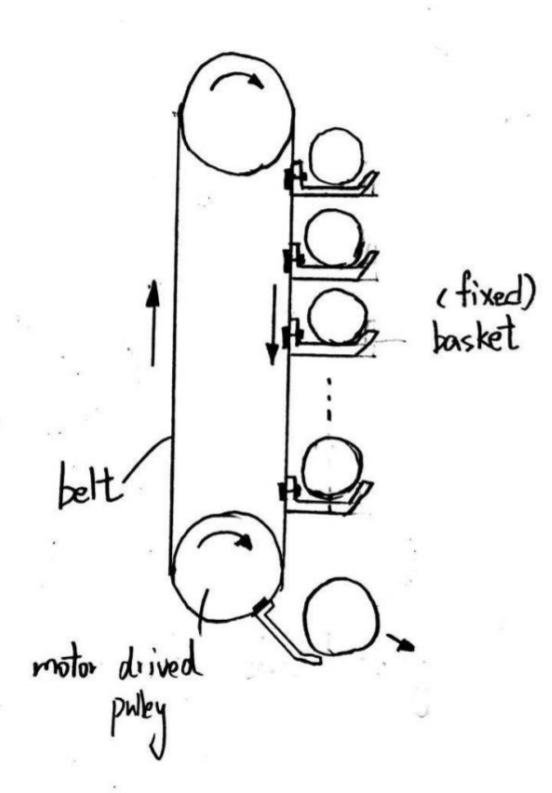 (fixed)
basket
belt
motor drived
pulley